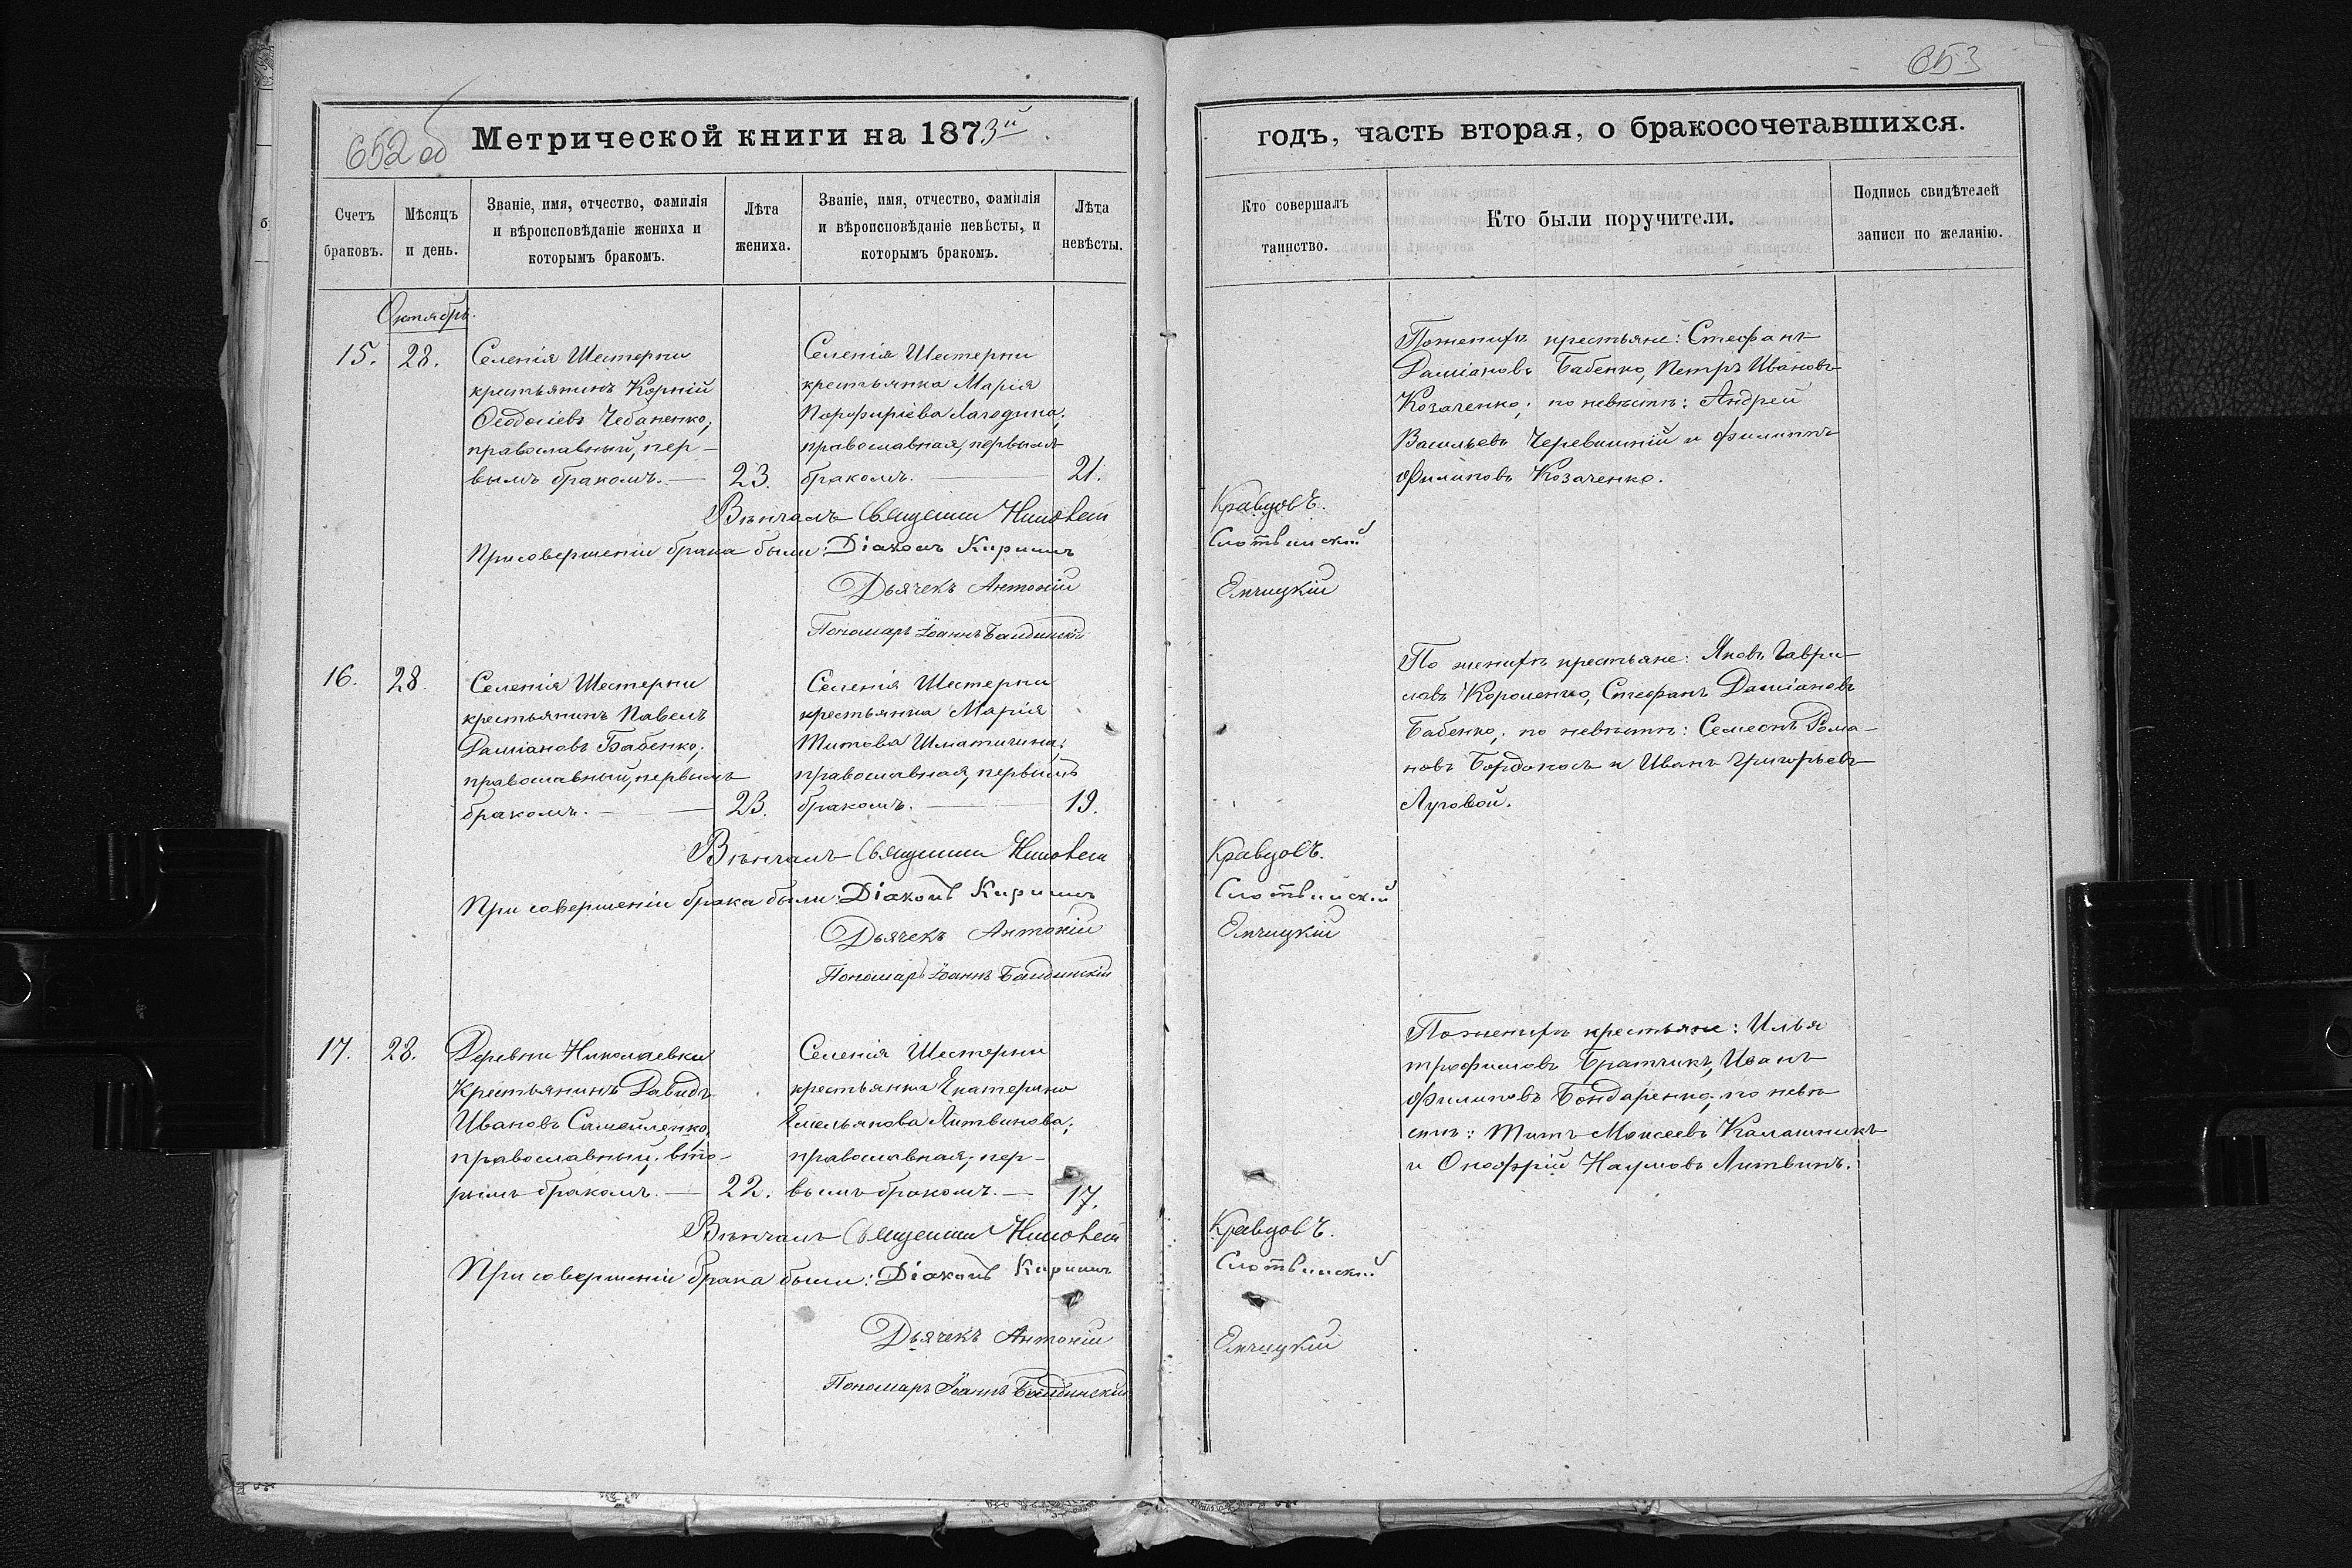 652 об
Метрической книги на 1873й
Счетъ браковъ.
Мѣсяцъ и день.
Званіе, имя, отчество, фамилія
и вѣроисповѣданіе жениха и
которымъ бракомъ.
Лѣта
жениха.
Званіе, имя, отчество, фамилія
и вѣроисповѣданіе невѣсты, и
которымъ бракомъ.
Лѣта
невѣсты.
Октябрь.
15. 28.
Селенія Шестерни
крестьянинъ Корній
Ѳеодосіевъ Чебаненко,
православный, пер-
вымъ бракомъ. — 23.
Селенія Шестерни
крестьянка Марія
Порфиріева Лагодина;
православная, первымъ
бракомъ. — 21.
Вѣнчалъ Священникъ
При совершеніи брака были: Діаконъ Кириллъ
Дьячекъ Антоній
Пономарь Іоаннъ
16. 28.
Селенія Шестерни
крестьянинъ Павелъ
Даміановъ Бабенко;
православный, первымъ
бракомъ. — 23.
Селенія Шестерни
крестьянка Марія
Титова
православная, первымъ
бракомъ. — 19.
Вѣнчалъ Священникъ
При совершеніи брака были: Діаконъ Кириллъ
Дьячекъ Антоній
Пономарь Іоаннъ
17. 28.
Деревни Николаевки
Крестьянинъ Давидъ
Ивановъ Самойленко,
православный, вто-
рымъ бракомъ. — 22.
Селенія Шестерни
крестьянка Екатерина
Емельянова Литвинова;
православная, пер-
вымъ бракомъ. — 17.
Вѣнчалъ Священникъ
При совершеніи брака были: Діаконъ Кириллъ
Дьячекъ Антоній
Пономарь Іоаннъ
653
годъ, часть вторая, о бракосочетавшихся.
Кто совершалъ
таинство.
Кто были поручители.
Подпись свидѣтелей
записи по желанію.
По женихѣ крестьяне: Стефанъ
Даміановъ Бабенко, Петръ Ивановъ
Козаченко; по невѣстѣ: Андрей
Васильевъ и Филиппъ
Филиповъ Козаченко.
Кравцовъ.
Слотвинский
Елчицкій
По женихѣ крестьяне: Яковъ Гаври-
ловъ Короленко, Стефанъ Даміановъ
Бабенко; по невѣстѣ: Семеонъ Рома-
новъ и Иванъ Григорьевъ
Луговой.
Кравцовъ.
Слотвинский
Елчицкій
По женихѣ крестьяне: Илья
Трофимовъ Братчикъ, Иванъ
Филиповъ Бондаренко; по невѣ
стѣ: Титъ Моисеевъ Калашникъ
и Онофрій Наумовъ Литвинъ.
Кравцовъ.
Слотвинский
Елчицкій